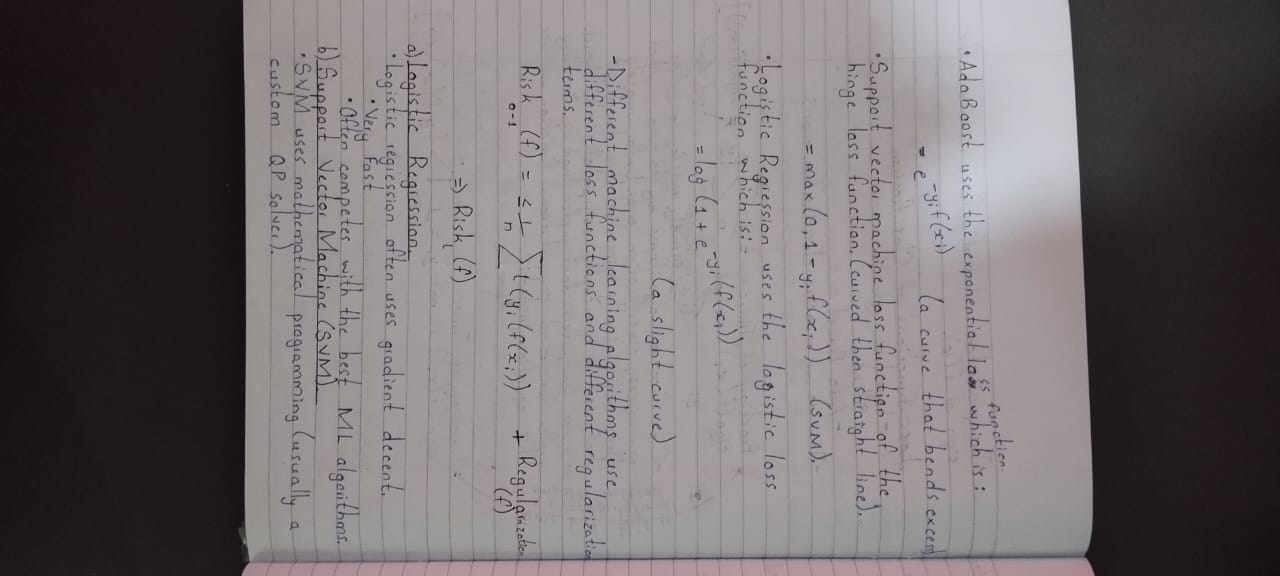 • AdaBoost uses the exponential loss function. which is:
= e^-yif(xi) (a curve that bends excess
• Support vector machine loss function - of the
hinge loss function. (curved then straight line).
= max(0, 1 - yi f(xi)) (SVM).
• Logistic Regression uses the logistic loss
function which is: -
= log (1 + e^-yi(f(xi))
(a slight curve)
- Different machine learning algorithms use
different loss functions and different regularization
terms.
Risk 0-1 (f) = ≤ 1/n ∑ l(yi(f(xi)) + Regularization
(f)
=> Risk (f)
a) Logistic Regression.
• Logistic regression often uses gradient decent.
• Very Fast
• Often competes with the best ML algorithms.
b) Support Vector Machine (SVM)
• SVM uses mathematical programming (usually a
custom QP solver).